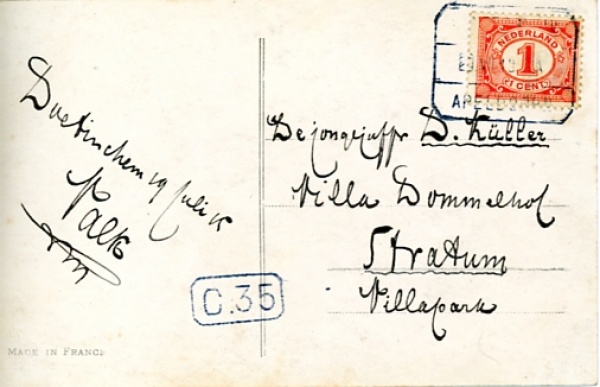 Doetinchem 19 Juli
Valk
C.35
MADE IN FRANCE
NEDERLAND
1
1 CENT
APELDOORN
De jongejuffr D. Küller
Villa Dommelhof
Stratum
Villapark